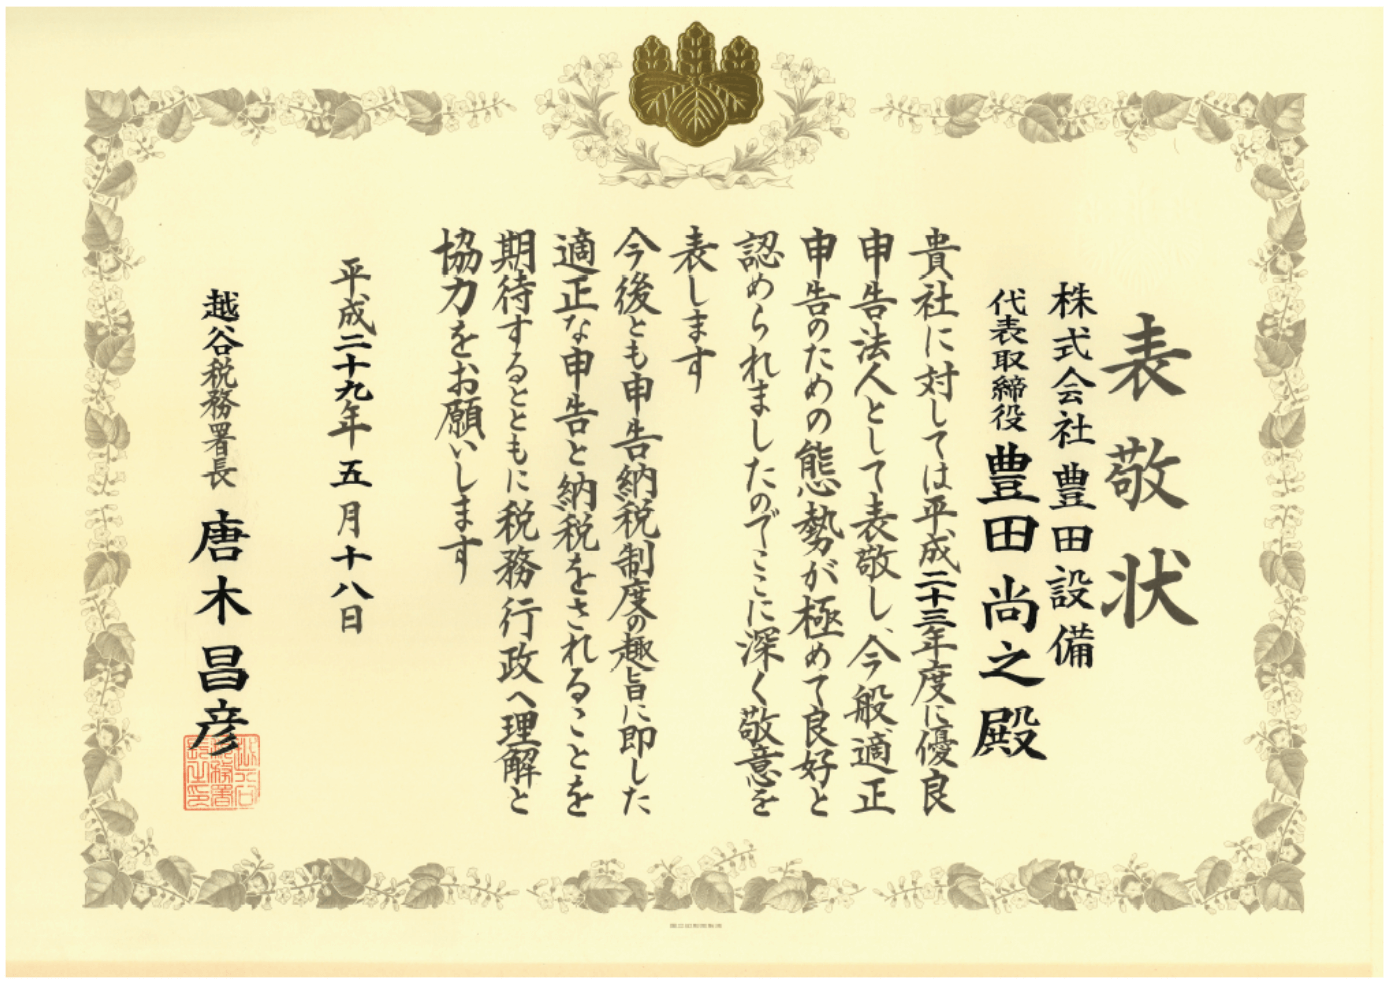 表敬状
株式会社 豊田設備
代表取締役 豊田尚之殿
貴社に対しては平成二十三年度に優良
申告法人として表敬し、今般、適正
申告のための態勢が極めて良好と
認められましたのでここに深く敬意を
表します
今後とも申告納税制度の趣旨に即した
適正な申告と納税をされることを
期待するとともに税務行政へ理解と
協力をお願いします
平成二十九年五月十八日
越谷税務署長 唐木昌彦